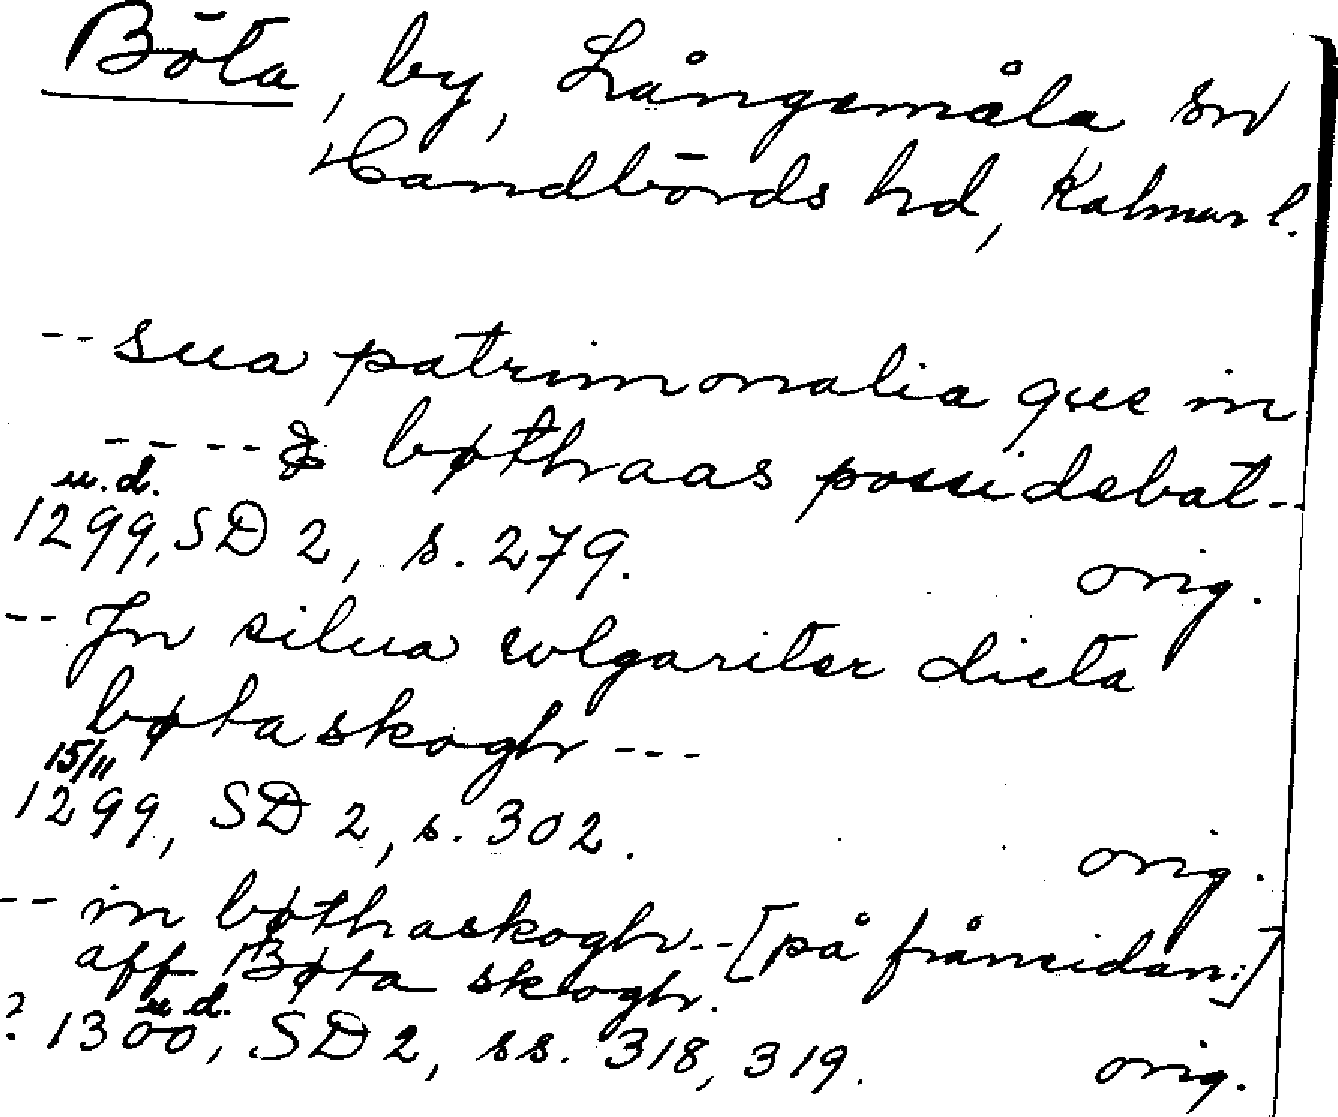 Böta, by, Långemåla sn
Handbörds hd, Kalmar l.
-- sua patrimonalia que in
---- & bøthraas possidebat --
u.d.
1299, SD 2, s. 279. orig.
-- Jn silua wlgariter dicta
bøtaskoghr ---
15/11
1299, SD 2, s. 302. orig.
-- in bøthaskoghr -- [på frånsidan:]
aff Bøta skoghr.
u.d.
? 1300, SD 2, ss. 318, 319. orig.